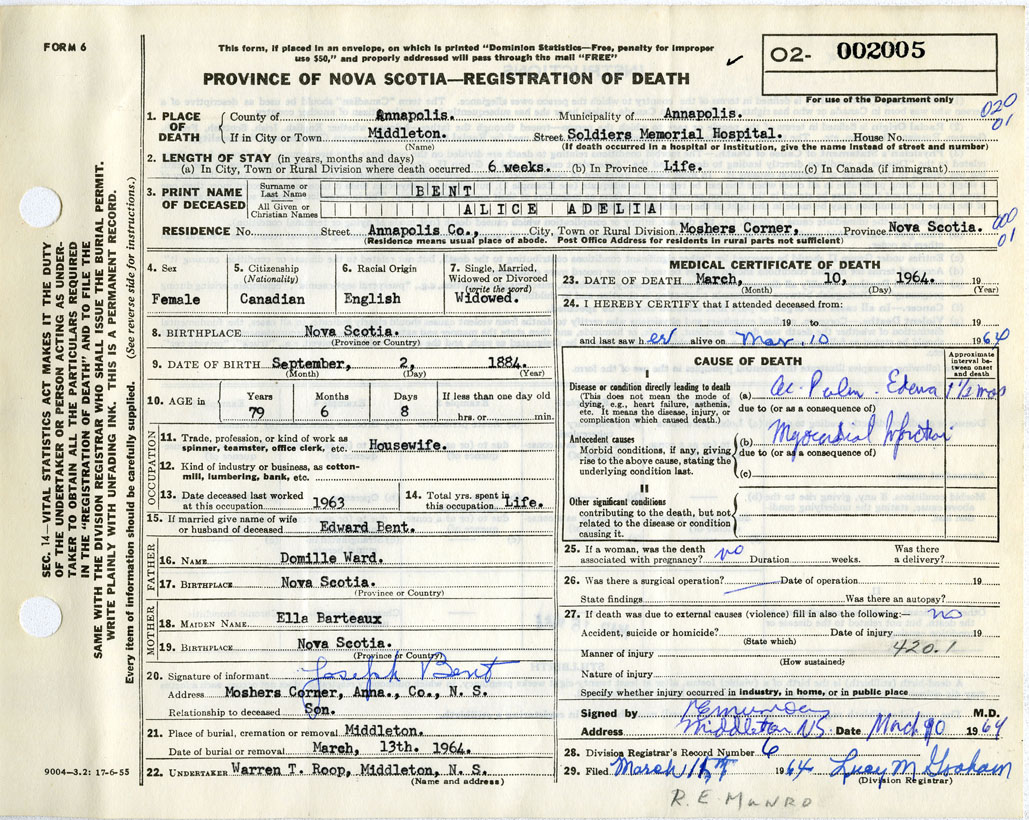 FORM 6
This form, if placed in an envelope, on which is printed "Dominion Statistics—Free, penalty for improper
use $50," and properly addressed will pass through the mail "FREE"
PROVINCE OF NOVA SCOTIA—REGISTRATION OF DEATH
02- 002005
For use of the Department only
020
01
1. PLACE OF DEATH
County of Annapolis. Municipality of Annapolis.
If in City or Town Middleton. Street Soldiers Memorial Hospital. House No.
(Name) (If death occurred in a hospital or institution, give the name instead of street and number)
2. LENGTH OF STAY (in years, months and days)
(a) In City, Town or Rural Division where death occurred 6 weeks. (b) In Province Life. (c) In Canada (if immigrant)
3. PRINT NAME OF DECEASED
Surname or Last Name BENT
All Given or Christian Names ALICE ADELIA
000
01
RESIDENCE No. Street Annapolis Co., City, Town or Rural Division Moshers Corner, Province Nova Scotia.
(Residence means usual place of abode. Post Office Address for residents in rural parts not sufficient)
4. Sex
Female
5. Citizenship
(Nationality)
Canadian
6. Racial Origin
English
7. Single, Married,
Widowed or Divorced
(write the word)
Widowed.
8. BIRTHPLACE Nova Scotia.
(Province or Country)
9. DATE OF BIRTH September, 2, 1884.
(Month) (Day) (Year)
10. AGE in
Years Months Days If less than one day old
79 6 8 hrs. or min.
OCCUPATION
11. Trade, profession, or kind of work as
spinner, teamster, office clerk, etc. Housewife.
12. Kind of industry or business, as cotton-
mill, lumbering, bank, etc.
13. Date deceased last worked
at this occupation 1963
14. Total yrs. spent in
this occupation Life.
15. If married give name of wife
or husband of deceased Edward Bent.
FATHER
16. NAME Domille Ward.
17. BIRTHPLACE Nova Scotia.
(Province or Country)
MOTHER
18. MAIDEN NAME Ella Barteaux
19. BIRTHPLACE Nova Scotia.
(Province or Country)
20. Signature of informant Joseph Bent
Address Moshers Corner, Anna., Co., N. S.
Relationship to deceased Son.
21. Place of burial, cremation or removal Middleton.
Date of burial or removal March, 13th. 1964.
22. UNDERTAKER Warren T. Roop, Middleton, N. S.
(Name and address)
MEDICAL CERTIFICATE OF DEATH
23. DATE OF DEATH March, 10, 1964. 19
(Month) (Day) (Year)
24. I HEREBY CERTIFY that I attended deceased from:
19 to 19
and last saw her alive on Mar. 10 1964
CAUSE OF DEATH
Approximate
interval be-
tween onset
and death
I
Disease or condition directly leading to death
(This does not mean the mode of
dying, e.g., heart failure, asthenia,
etc. It means the disease, injury, or
complication which caused death.)
(a) Ac. Pulm. Edema 1 1/2 mos
due to (or as a consequence of)
Antecedent causes
Morbid conditions, if any, giving
rise to the above cause, stating the
underlying condition last.
(b) Myocardial Infarction
due to (or as a consequence of)
(c)
II
Other significant conditions
contributing to the death, but not
related to the disease or condition
causing it.
25. If a woman, was the death
associated with pregnancy? no Duration weeks. Was there
a delivery?
26. Was there a surgical operation? Date of operation 19
State findings Was there an autopsy?
27. If death was due to external causes (violence) fill in also the following:— no
Accident, suicide or homicide? Date of injury 19
(State which)
420.1
Manner of injury
(How sustained)
Nature of injury
Specify whether injury occurred in industry, in home, or in public place
Signed by M.D.
Address Middleton NS. Date March 10 1964
28. Division Registrar's Record Number 6
29. Filed March 1964 Lucy M Graham
(Division Registrar)
R. E. MUNRO
9004—3.2: 17-6-55
SEC. 14—VITAL STATISTICS ACT MAKES IT THE DUTY
OF THE UNDERTAKER OR PERSON ACTING AS UNDER-
TAKER TO OBTAIN ALL THE PARTICULARS REQUIRED
IN THE "REGISTRATION OF DEATH" AND TO FILE THE
SAME WITH THE DIVISION REGISTRAR WHO SHALL ISSUE THE BURIAL PERMIT.
WRITE PLAINLY WITH UNFADING INK. THIS IS A PERMANENT RECORD.
Every item of information should be carefully supplied. (See reverse side for instructions.)